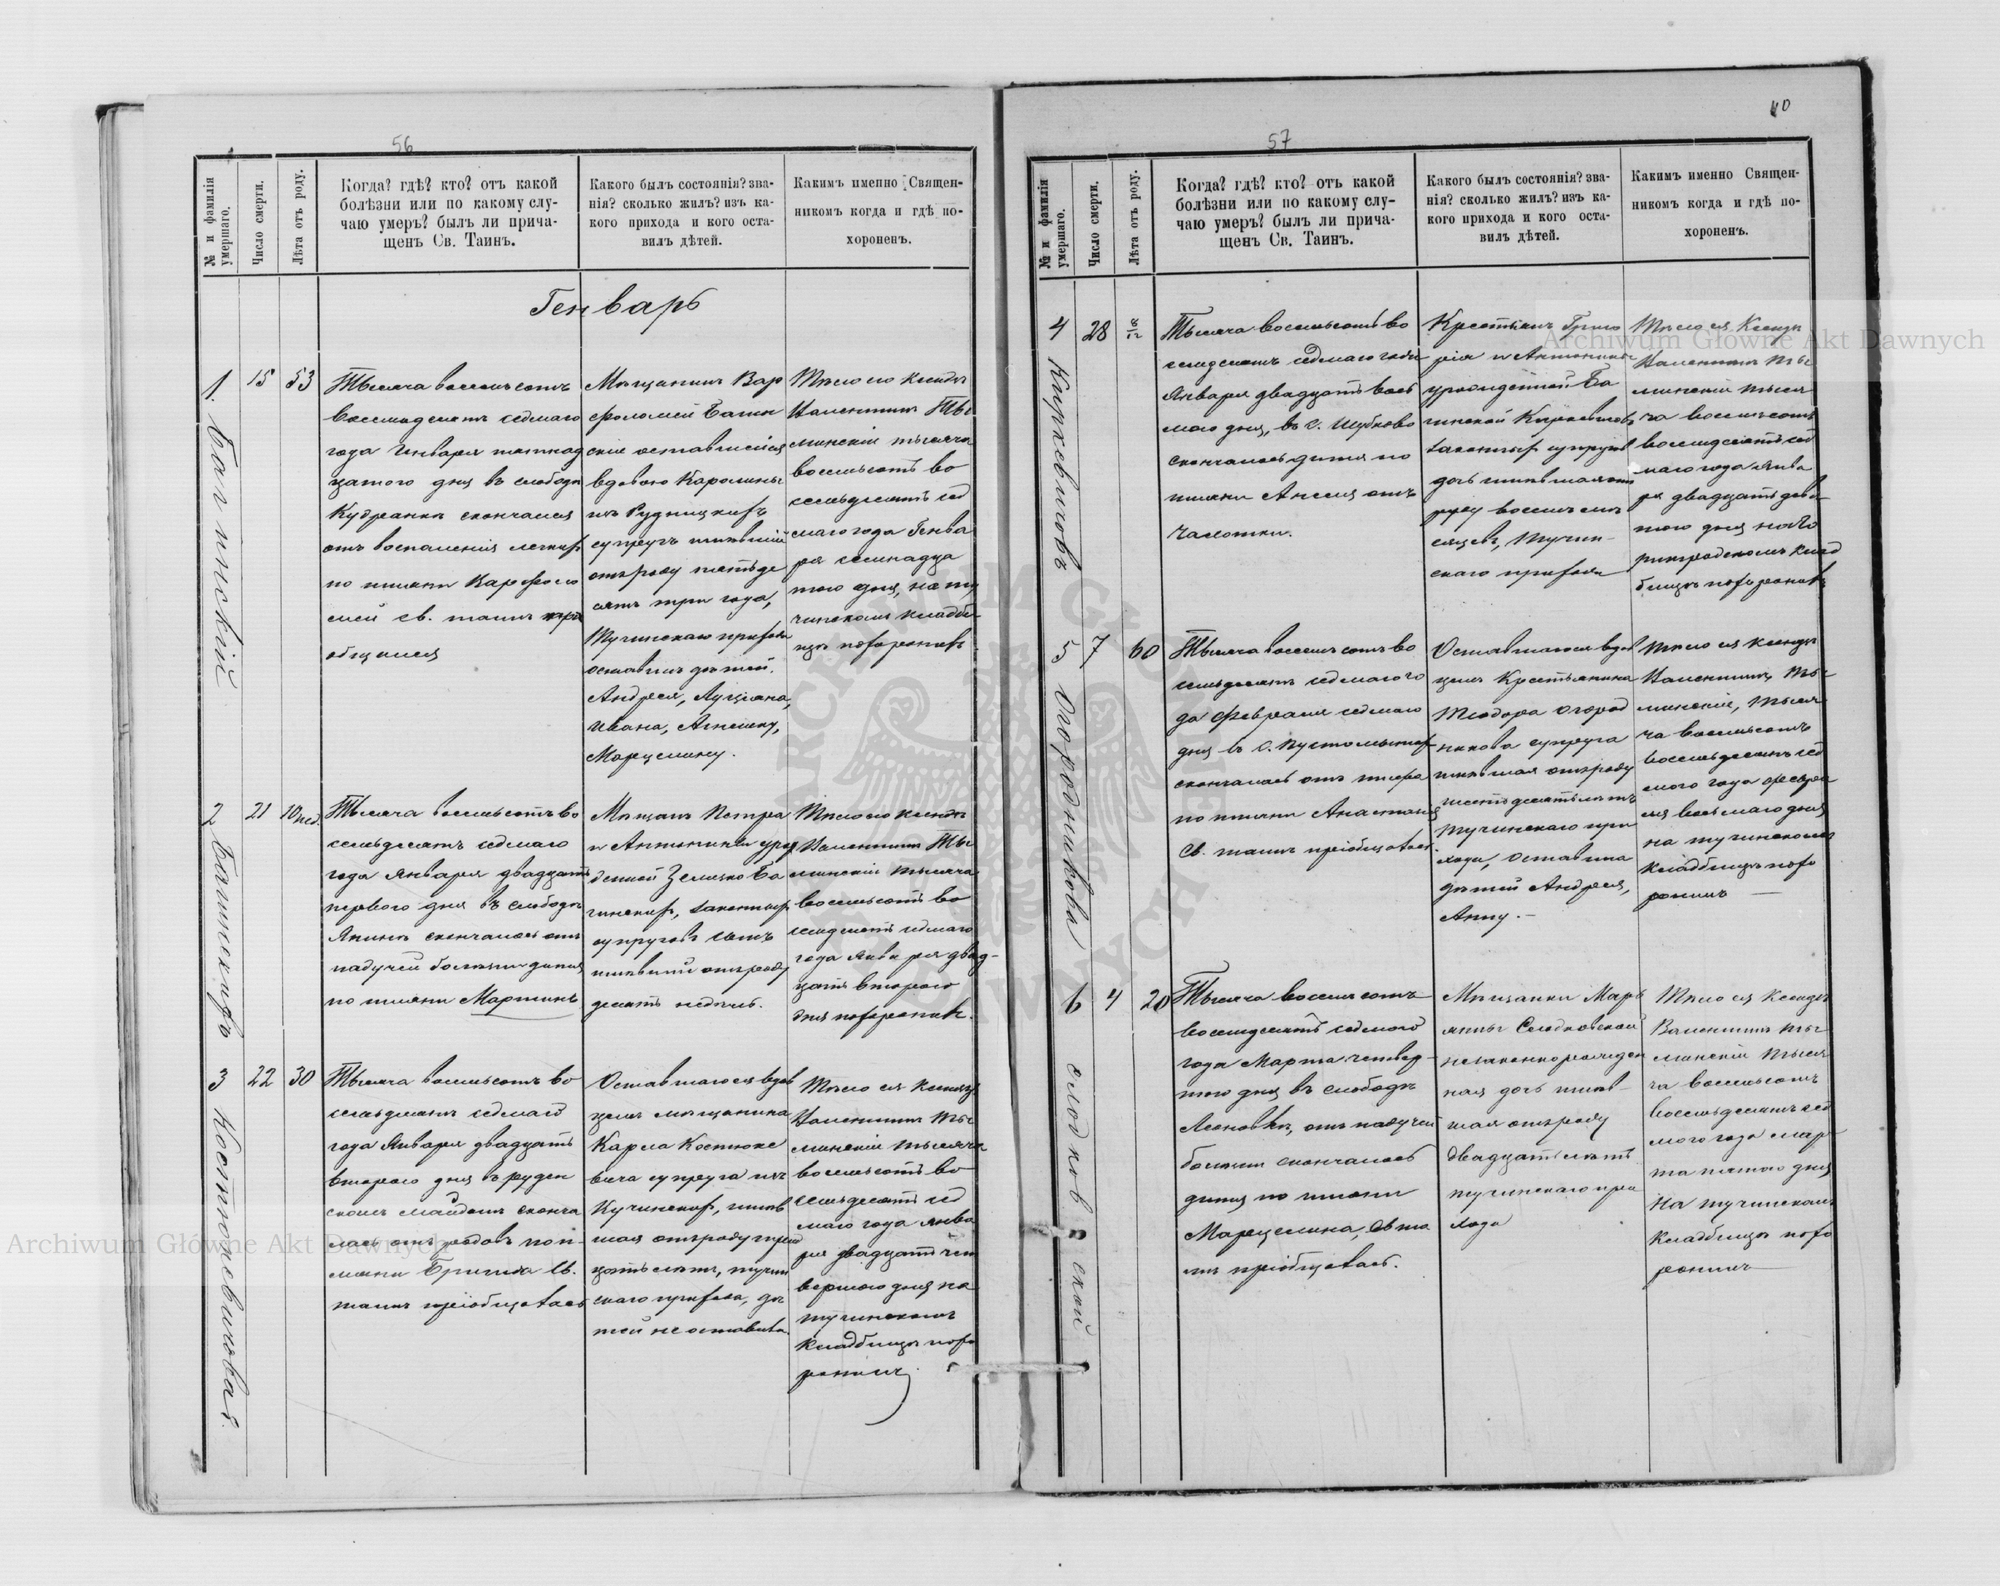 56
№ и фамилія умершаго.
Число смерти.
Лѣта отъ роду.
Когда? гдѣ? кто? отъ какой
болѣзни или по какому слу-
чаю умеръ? былъ ли прича-
щенъ Св. Таинъ.
Какого былъ состоянія? зва-
нія? сколько жилъ? изъ ка-
кого прихода и кого оста-
вилъ дѣтей.
Какимъ именно Священ-
никомъ когда и гдѣ по-
хороненъ.
Генварь
1.
15
53
Тысяча восемьсотъ
восемьдесятъ седмаго
года Января пятнад
цатого дня въ слободѣ
скончался
отъ воспаленія легкихъ
по имени Варфоло
мей св. таинъ прі
общался
Мѣщанинъ Вар
фоломей Багин
скій оставшейся
вдовою Каролины
изъ Рудницкихъ
супругъ жившій
отъ роду пятьде
сятъ три года,
Тучинскаго прихода
оставилъ дѣтей.
Андрея, Луціана,
Ивана, Агнешку,
Марцелину.
Тѣло его ксендзъ
Валентинъ
минскій тысяча
восемьсотъ во
семьдесятъ сед
маго года Генва
ря семнадца
того дня, на ту
чинскомъ кладби
щѣ похоронилъ
2
21
10 нед.
Тысяча восемьсотъ во
семьдесятъ седмаго
года Января двадцать
перваго дня въ слободѣ
скончалось отъ
падучей болѣзни дитя
по имени Мартинъ
Мѣщанъ Петра
и Антонины урож
денной Ба
гинскихъ, законныхъ
супруговъ сынъ
жившій отъ роду
десять недѣль.
Тѣло его ксендзъ
Валентинъ
минскій тысяча
восемьсотъ во
семьдесятъ седмаго
года Января двад-
цать втораго
дня похоронилъ.
3
Костюкевичова
22
30
Тысяча восемьсотъ во
семьдесятъ седмаго
года Января двадцать
втораго дня въ Руден
скомъ Майданѣ сконча
лась отъ родовъ по и-
мени Бригида св.
таинъ пріобщалась
Оставшагося вдов
цемъ мѣщанина
Карла Костюке
вича супруга изъ
Кучинскихъ, жив
шая отъ роду трид
цать лѣтъ, тучин
скаго прихода, дѣ
тей не оставила.
Тѣло ея ксендзъ
Валентинъ
минскій тысяча
восемьсотъ во
семьдесятъ сед
маго года Янва
ря двадцать чет
вертого дня на
тучинскомъ
кладбищѣ похо
ронилъ
57
40
№ и фамилія умершаго.
Число смерти.
Лѣта отъ роду.
Когда? гдѣ? кто? отъ какой
болѣзни или по какому слу-
чаю умеръ? былъ ли прича-
щенъ Св. Таинъ.
Какого былъ состоянія? зва-
нія? сколько жилъ? изъ ка-
кого прихода и кого оста-
вилъ дѣтей.
Какимъ именно Священ-
никомъ когда и гдѣ по-
хороненъ.
4
28
Тысяча восемьсотъ во
семьдесятъ седмаго года
Января двадцать вось
мого дня, въ с. Шубково
скончалось дитя по
имени Анеля отъ
чахотки.
Крестьянъ Григо
рія и Антонины
урожденной Ба
гинской
законныхъ супруговъ
дочь жившая отъ
роду восемь мѣ
сяцевъ, Тучин-
скаго прихода
Тѣло ея Ксендзъ
Валентинъ
минскій тыся
ча восемьсотъ
восемьдесятъ сед
маго года Янва
ря двадцать девя
того дня на
клад
бищѣ похоронилъ
5
Огородникова
7
60
Тысяча восемьсотъ во
семьдесятъ седмаго го
да Февраля седмаго
дня въ с. Пустомытахъ
скончалась отъ тифа
по имени Анастасія
Св. таинъ пріобщалась.
Оставшагося вдов
цемъ Крестьянина
Теодора Огород
никова супруга
жившая отъ роду
шестьдесятъ лѣтъ
тучинскаго при
хода, оставила
дѣтей Андрея,
Анну. -
Тѣло ея ксендзъ
Валентинъ
минскій, тыся
ча восемьсотъ
восемьдесятъ сед
мого года Февра
ля восьмаго дня
на тучинскомъ
кладбищѣ похо
ронилъ
6
4
20
Тысяча восемьсотъ
восемьдесятъ седмого
года Марта четвер-
того дня въ слободѣ
отъ падучей
болѣзни скончалась
дѣвица по имени
Марцелина, Св. та
инъ пріобщалась.
Мѣщанки Марь
яны
незаконнорожден
ная дочь жив-
шая отъ роду
двадцать лѣтъ
тучинскаго при
хода
Тѣло ея Ксендзъ
Валентинъ
минскій тыся
ча восемьсотъ
восемьдесятъ сед
мого года Мар
та пятого дня
на тучинскомъ
кладбищѣ похо
ронилъ
Archiwum Główne Akt Dawnych
Archiwum Główne Akt Dawnych